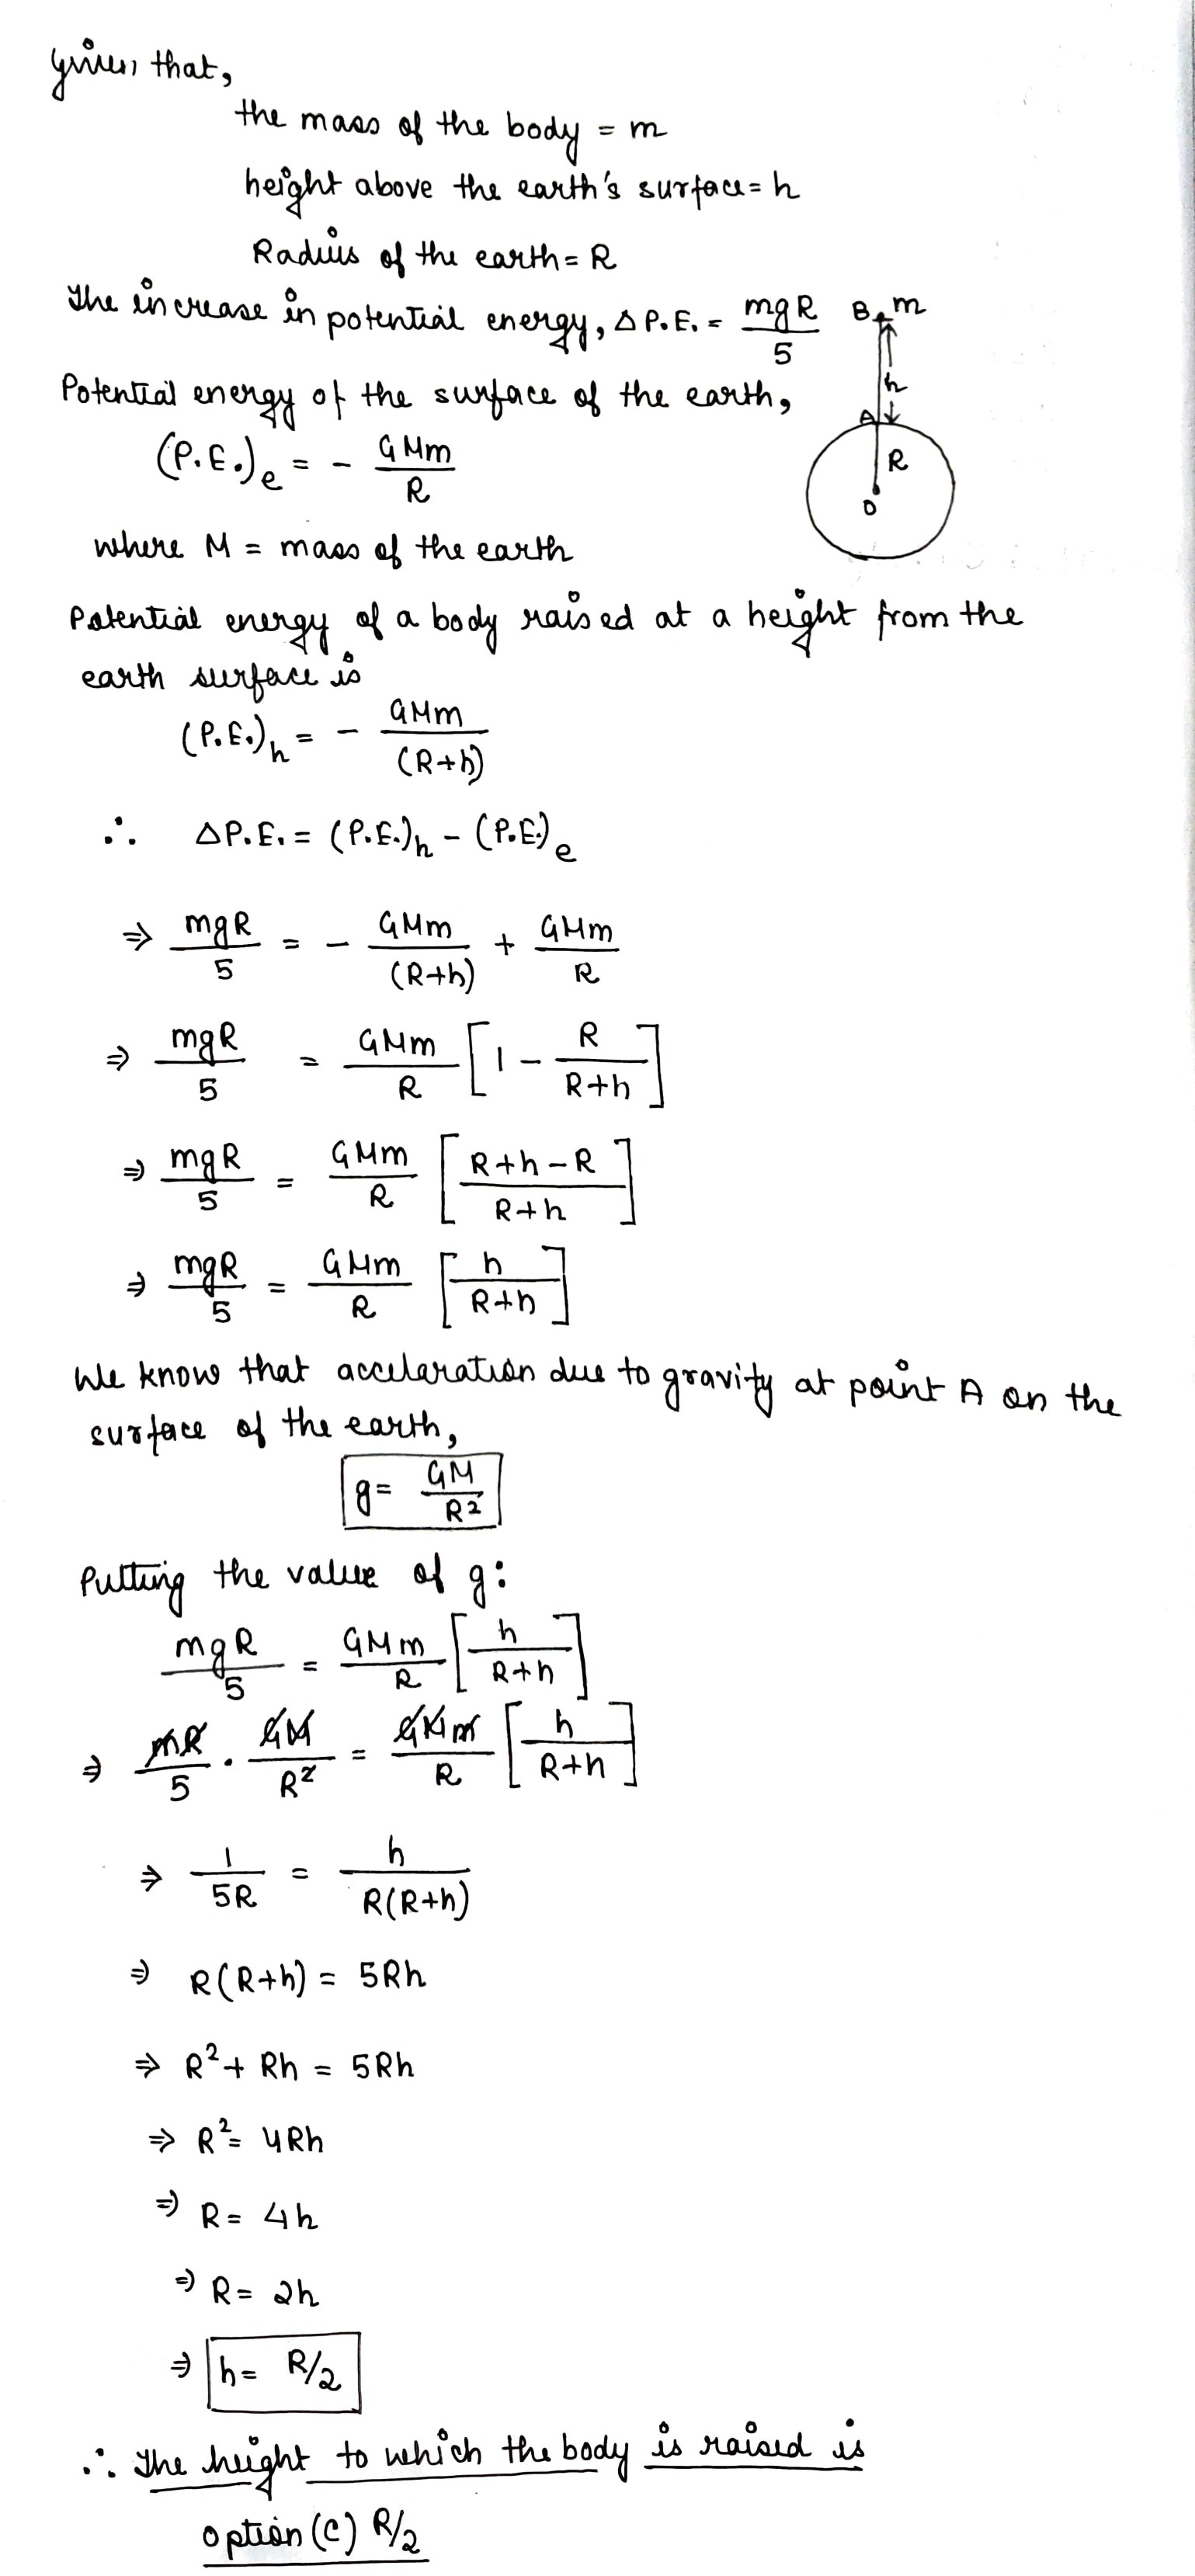 Given that,
the mass of the body = m
height above the earth's surface = h
Radius of the earth = R
The increase in potential energy, ΔP.E. = mgR/5
B m
h
A
R
O
Potential energy of the surface of the earth,
(P.E.)e = - GMm/R
where M = mass of the earth
Potential energy of a body raised at a height from the
earth surface is
(P.E.)h = - GMm/(R+h)
∴ ΔP.E. = (P.E.)h - (P.E.)e
⇒ mgR/5 = - GMm/(R+h) + GMm/R
⇒ mgR/5 = GMm/R [1 - R/R+h]
⇒ mgR/5 = GMm/R [R+h-R/R+h]
⇒ mgR/5 = GMm/R [h/R+h]
We know that accelaration due to gravity at point A on the
surface of the earth,
g = GM/R²
Putting the value of g:
mgR/5 = GMm/R [h/R+h]
⇒ mR/5 . GM/R² = GMm/R [h/R+h]
⇒ 1/5R = h/R(R+h)
⇒ R(R+h) = 5Rh
⇒ R² + Rh = 5Rh
⇒ R² = 4Rh
⇒ R = 4h
⇒ R = 2h
⇒ h = R/2
∴ The height to which the body is raised is
option (C) R/2